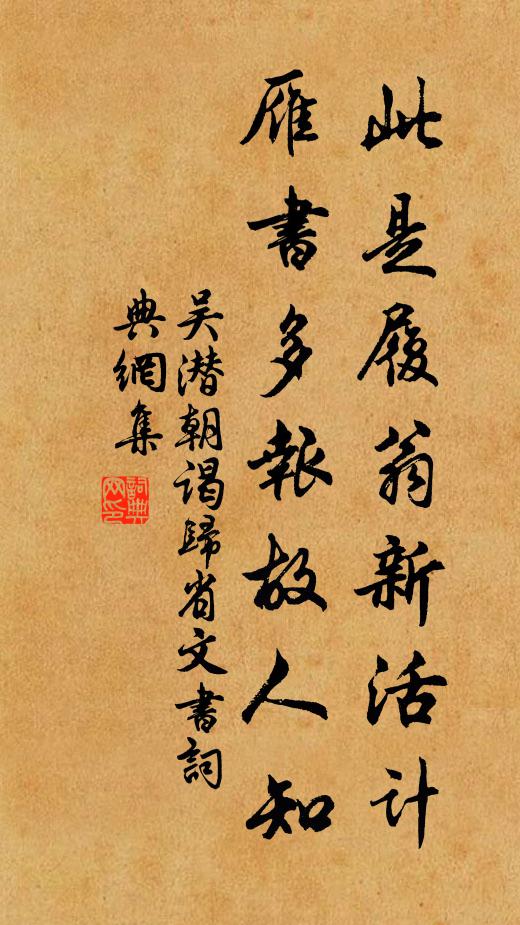 此是履翁新活计
雁書多報故人知
吴潜朝謁歸省文書詞
典網集
詞典
网印